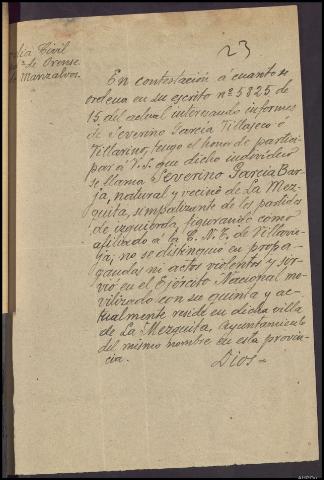 23
dia Civil
de Orense
Manzalvos.
En contestación á cuanto se
ordena en su escrito nº 5825 de
15 del actual interesando informes
de Severino García Villajeco ó
Villarino, tengo el honor de partici-
par á V.S. que dicho individuo
se llama Severino García Bar-
ja, natural y vecino de La Mez-
quita, simpatizante de los partidos
de izquierda, figurando como
afiliado á la C.N.T. de Villavie-
ja; no se distinguió en propa-
gandas ni actos violentos y sir-
vió en el Ejército Nacional mo-
vilizado con su quinta y ac-
tualmente reside en dicha villa
de La Mezquita, Ayuntamiento
del mismo nombre en esta provin-
cia.
Dios-